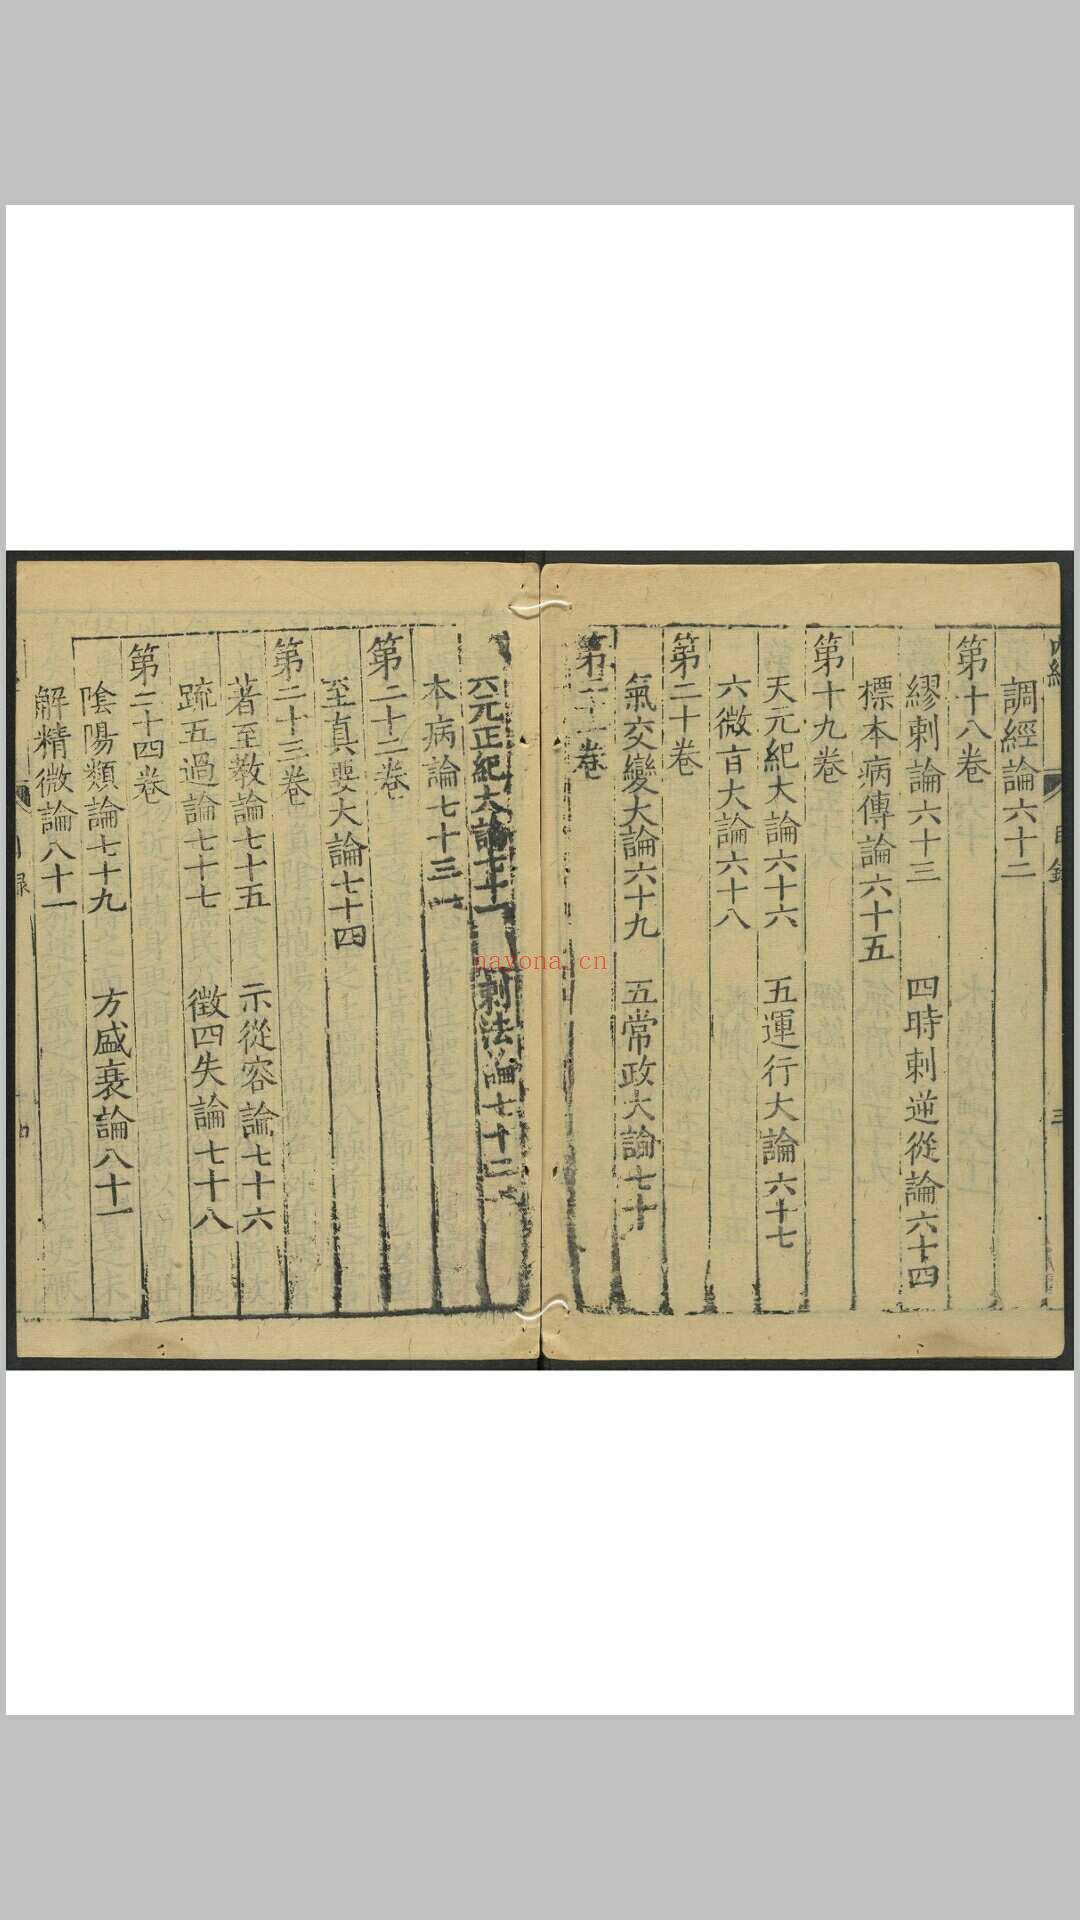 調經論六十二
第十八卷
繆刺論六十三　四時刺逆從論六十四
標本病傳論六十五
第十九卷
天元紀大論六十六　五運行大論六十七
六微旨大論六十八
第二十卷
氣交變大論六十九　五常政大論七十
第二十一卷
六元正紀大論七十一　刺法論七十二
本病論七十三
第二十二卷
至真要大論七十四
第二十三卷
著至教論七十五　示從容論七十六
疏五過論七十七　徵四失論七十八
第二十四卷
陰陽類論七十九　方盛衰論八十一
解精微論八十一
nayona.cn